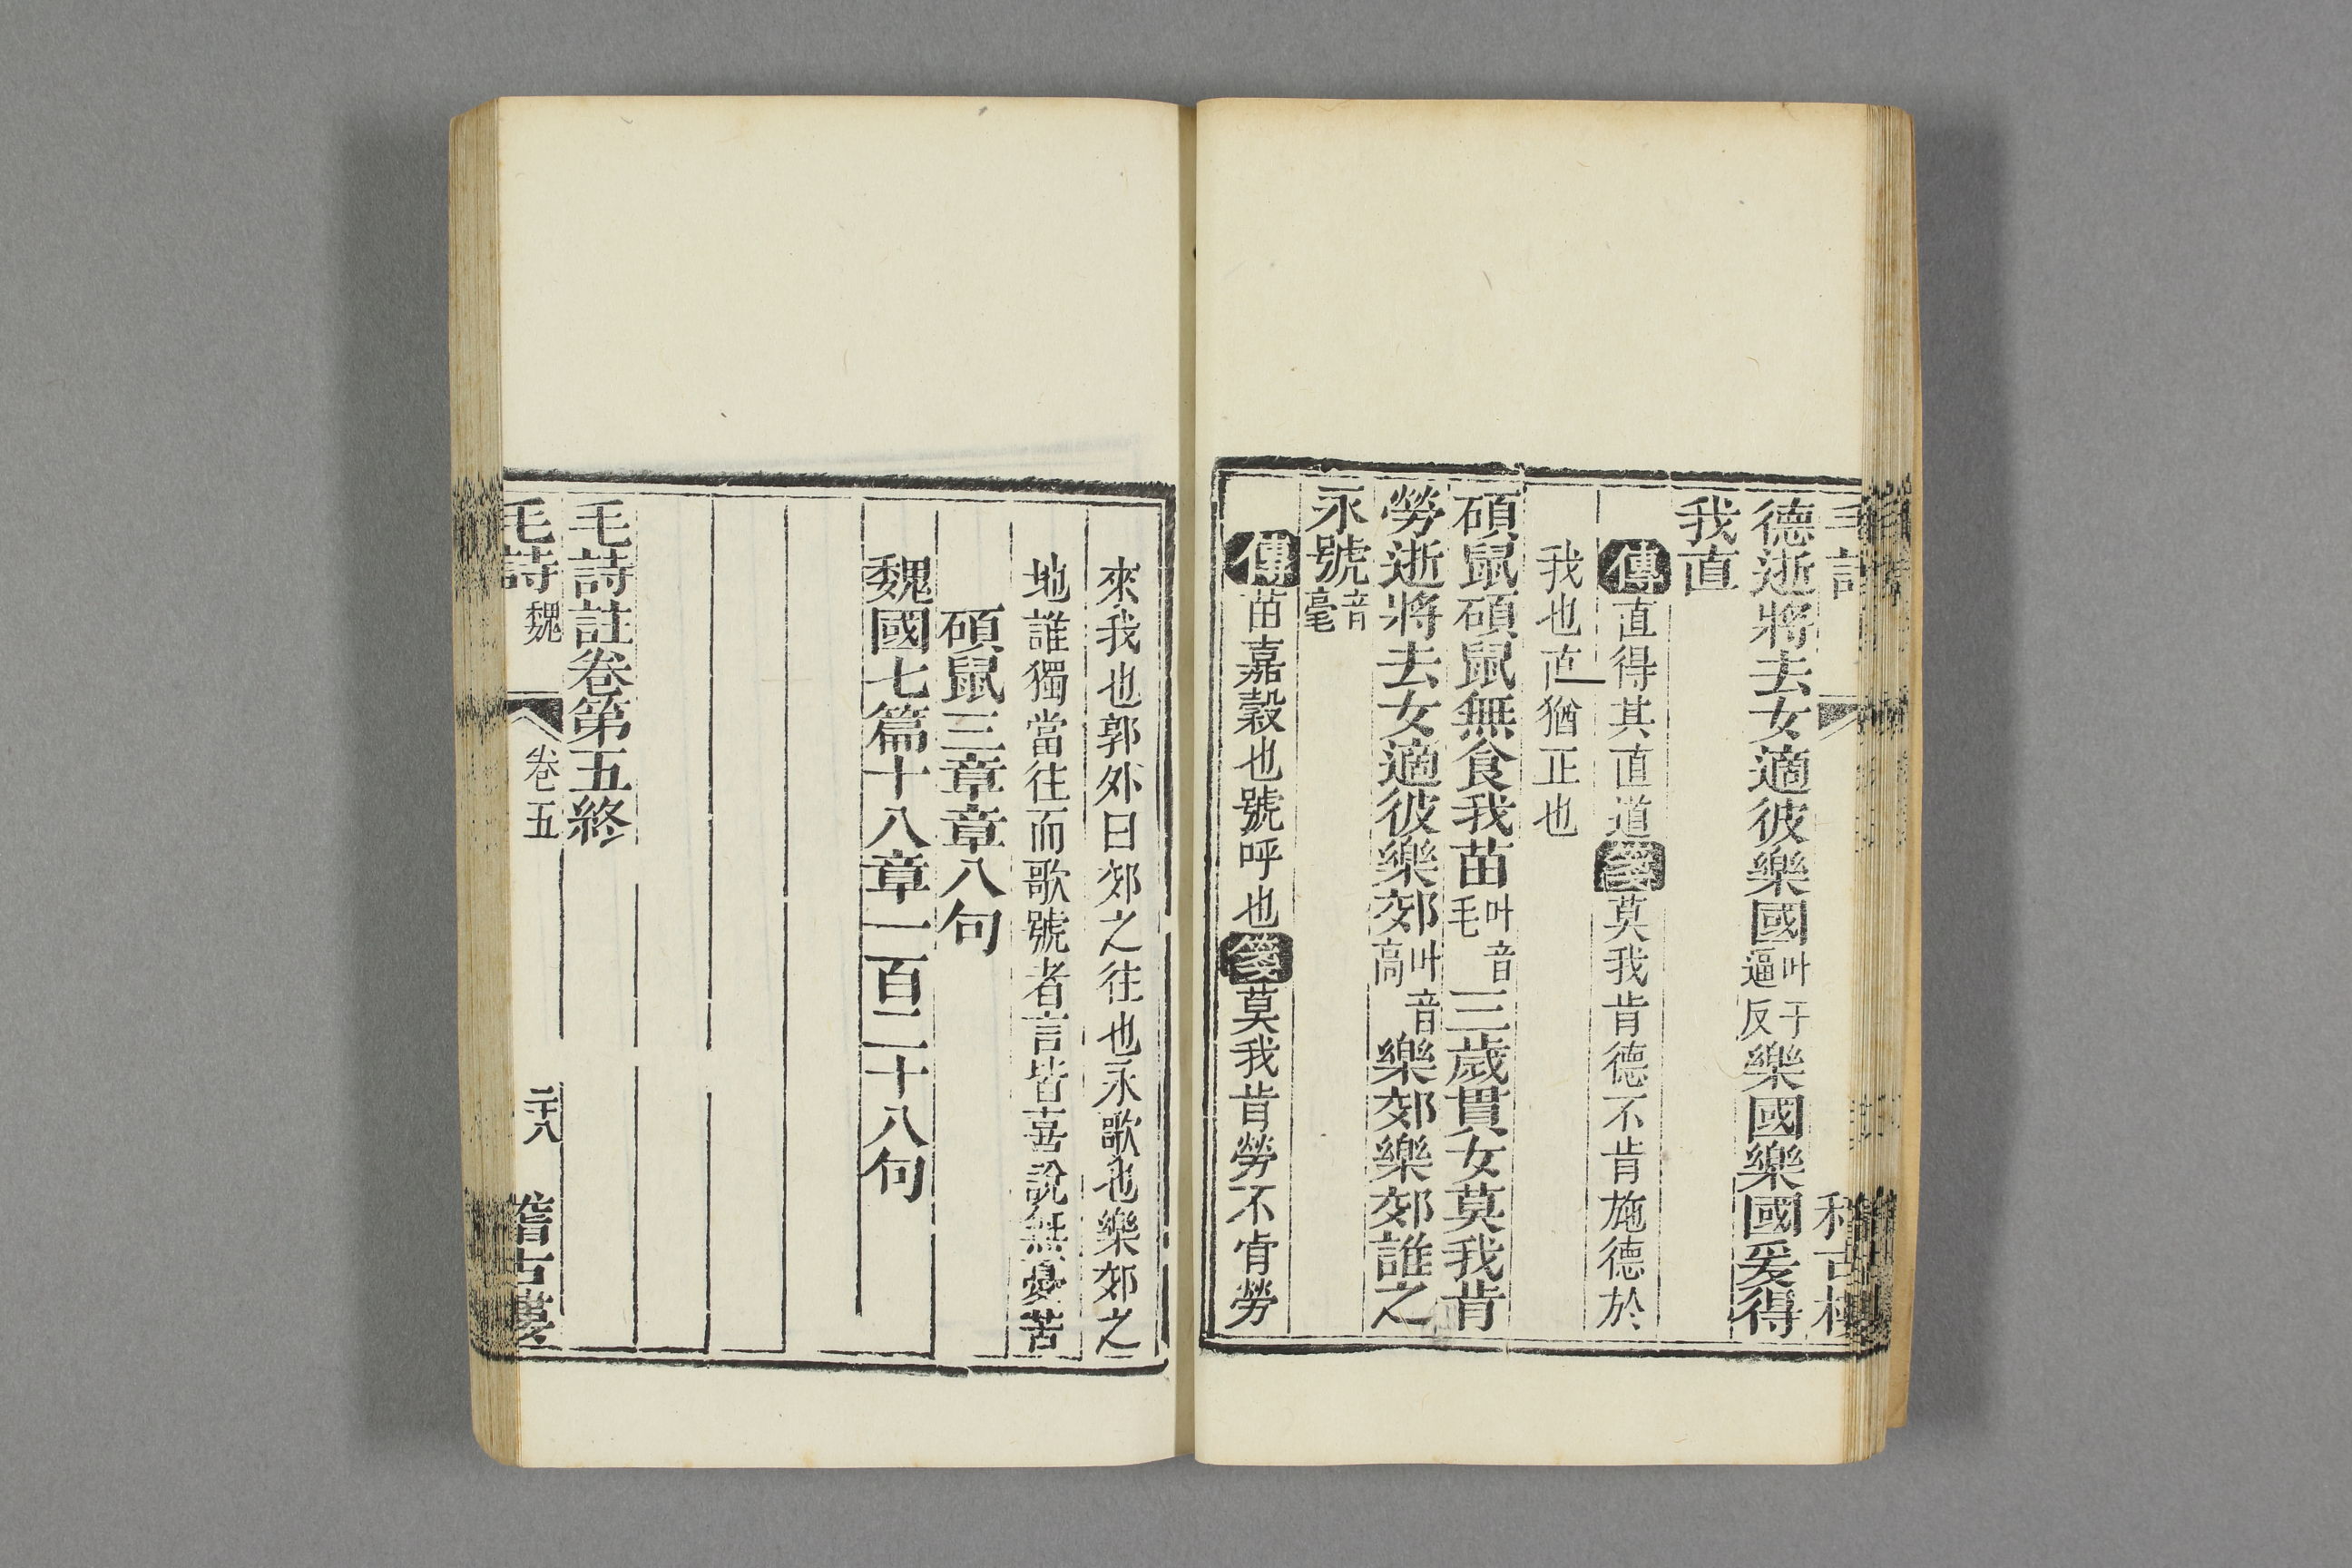 德逝將去女適彼樂國叶于逼反樂國樂國爰得
我直
傳直得其直道箋莫我肯德不肯施德於
我也直猶正也
碩鼠碩鼠無食我苗叶音毛三歲貫女莫我肯
勞逝將去女適彼樂郊叶音高樂郊樂郊誰之
永號音毫
傳苗嘉穀也號呼也箋莫我肯勞不肯勞
來我也郭外曰郊之往也永歌也樂郊之
地誰獨當往而歌號者言皆喜說無憂苦
碩鼠三章章八句
魏國七篇十八章一百二十八句
毛詩註卷第五終
毛詩 魏 卷五 二十八 稽古樓